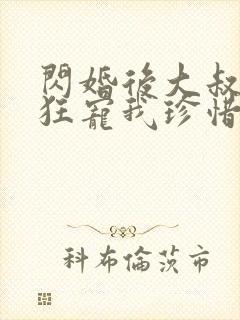 閃婚後大叔
狂寵我珍惜
科布倫茨市